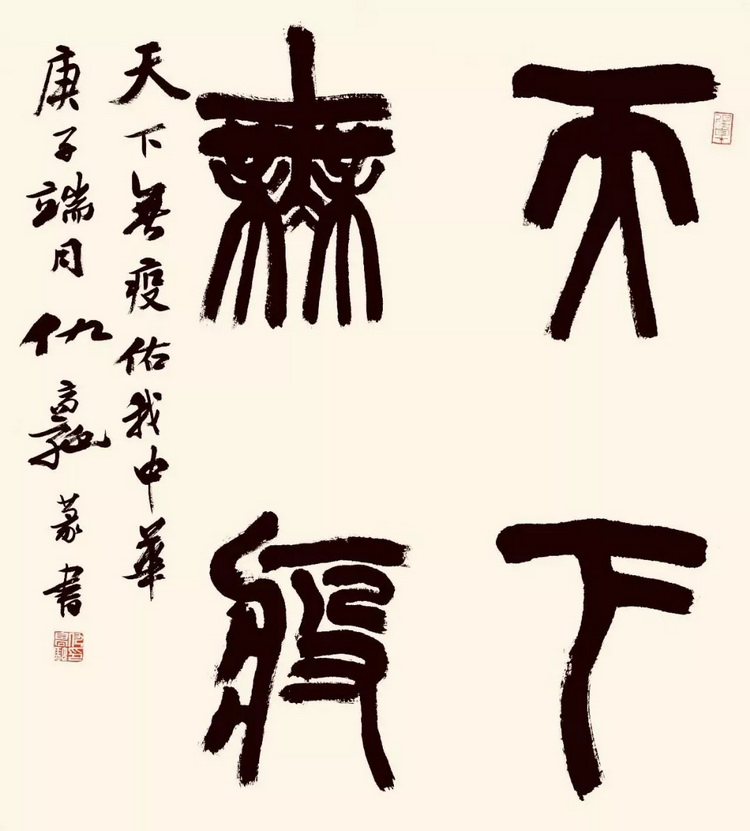 天下
無疫
天下無疫佑我中華
庚子端月仇高馳篆書